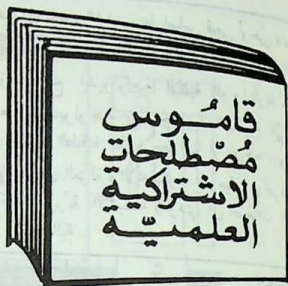 قامُوس
مُصْطلحاتِ
الاشتراكيةِ
العلميّة